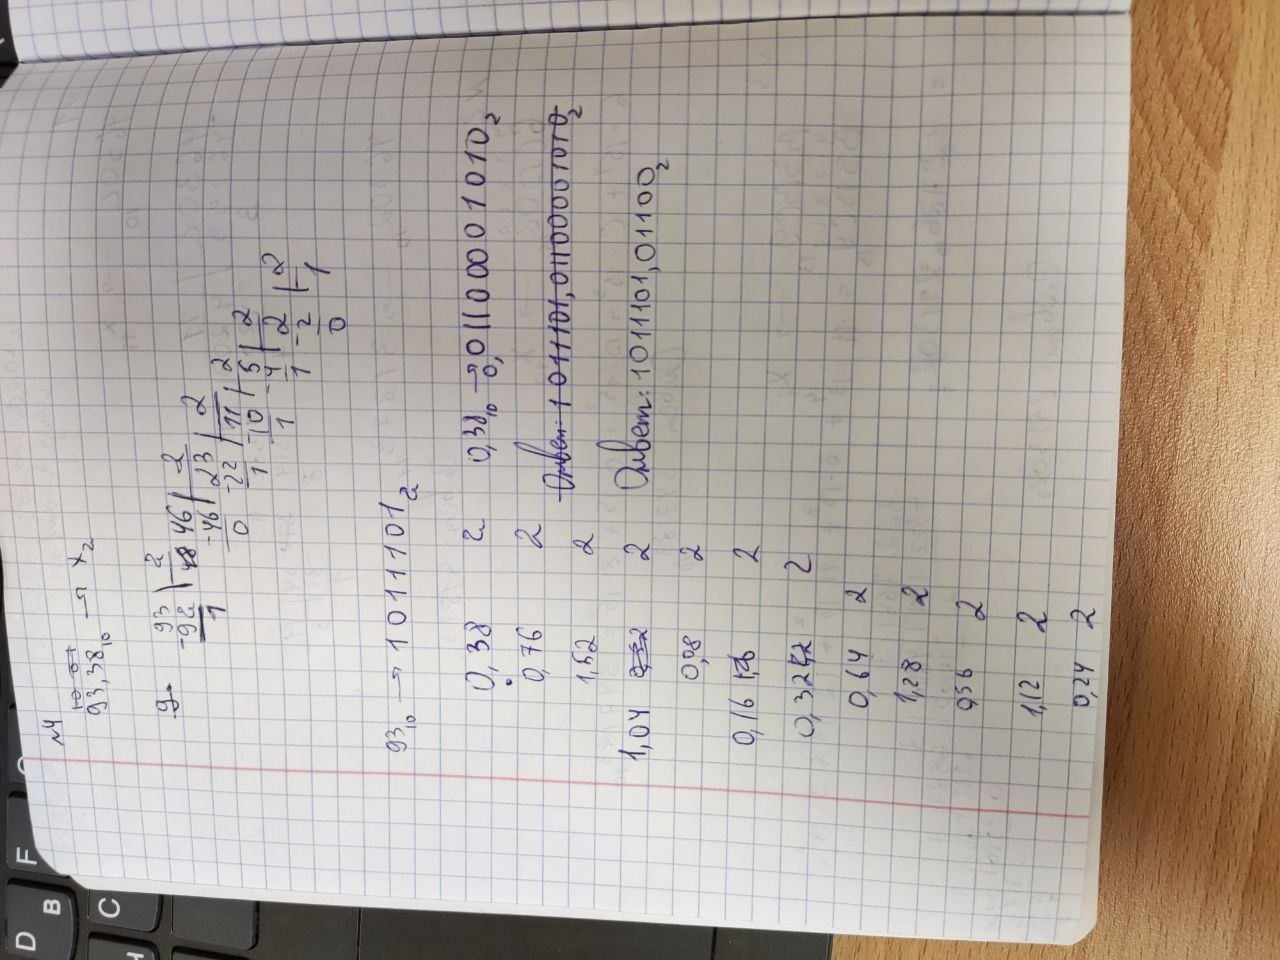 №4
93,38₁₀ → x₂
93 | 2
-92 | 46 | 2
1 -46 | 23 | 2
0 -22 | 11 | 2
1 -10 | 5 | 2
1 -4 | 2 | 2
1 -2 | 1
0
93₁₀ → 1011101₂
0,38 2
0,76 2
1,52 2
1,04 2
0,08 2
0,16 2
0,32 2
0,64 2
1,28 2
0,56 2
1,12 2
0,24 2
0,38₁₀ → 0,01100001010₂
Ответ: 1011101,01100001010₂
Ответ: 1011101,01100₂
D
F
B
C